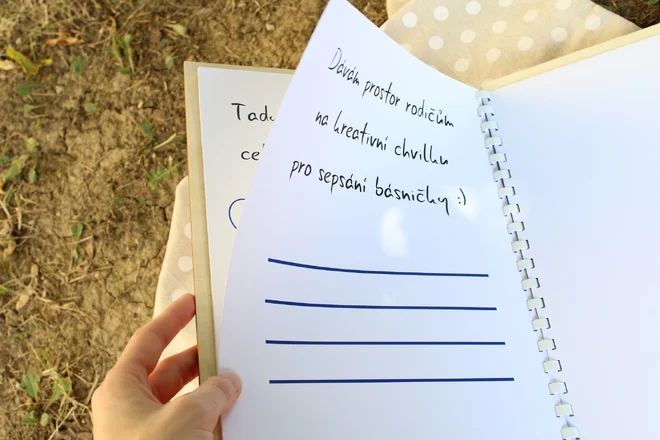 Dávám prostor rodičům
na kreativní chvilku
pro sepsání básničky :)